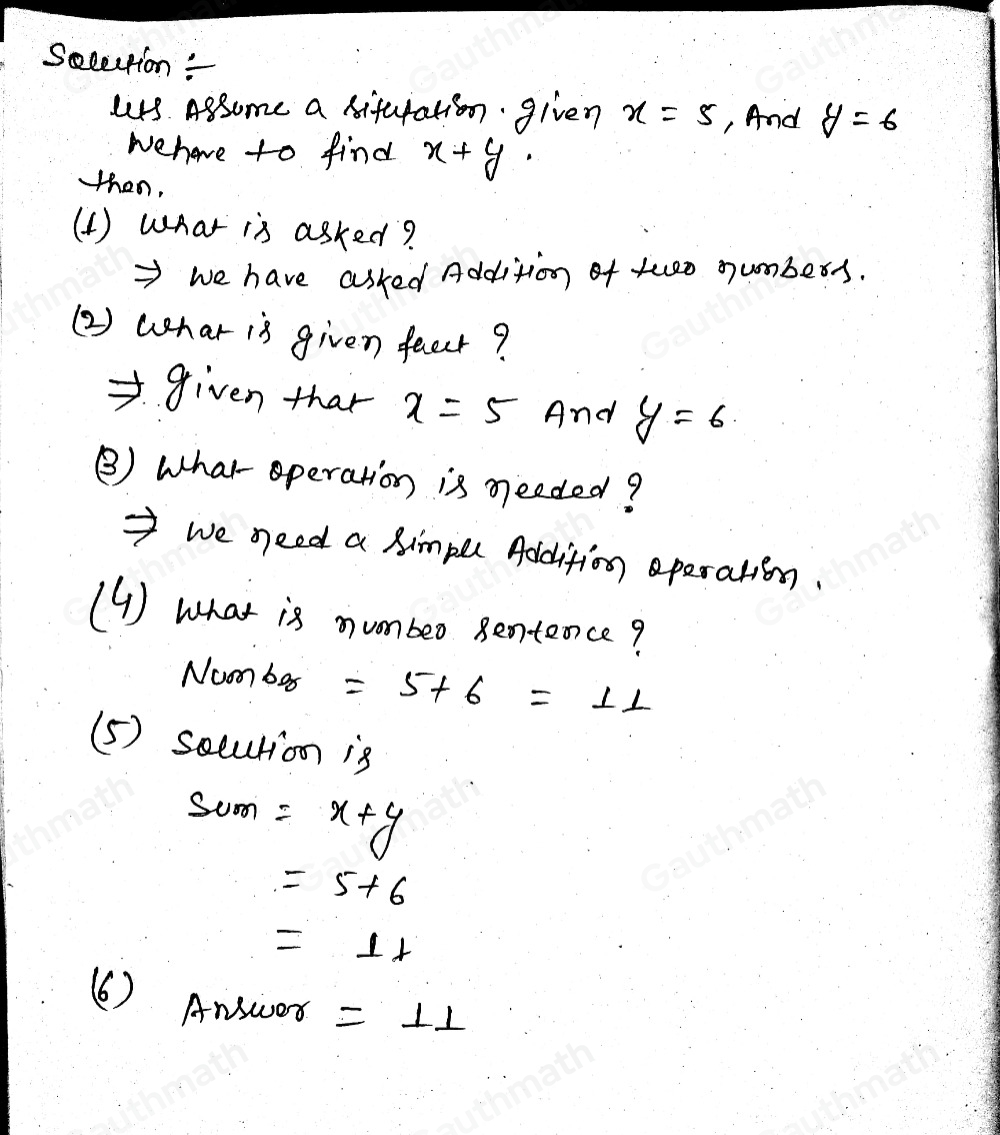 Solution :-
lets Assume a situtation. given x = 5, And y = 6
We have to find x + y.
then,
(1) What is asked?
⇒ we have asked Addition of two numbers.
(2) What is given fact?
⇒ given that x = 5 And y = 6.
(3) What operation is needed?
⇒ We need a simple Addition operation.
(4) What is number sentence?
Number = 5+6 = 11
(5) Solution is
Sum = x+y
= 5+6
= 11
(6) Answer = 11
Gauthmath